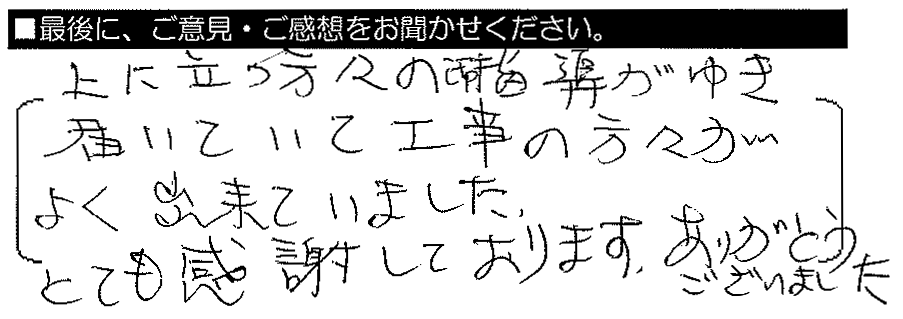 ■最後に、ご意見・ご感想をお聞かせください。
上に立つ方々の指導がゆき
届いていて工事の方々が
よく出来ていました。
とても感謝しております。ありがとう
ございました